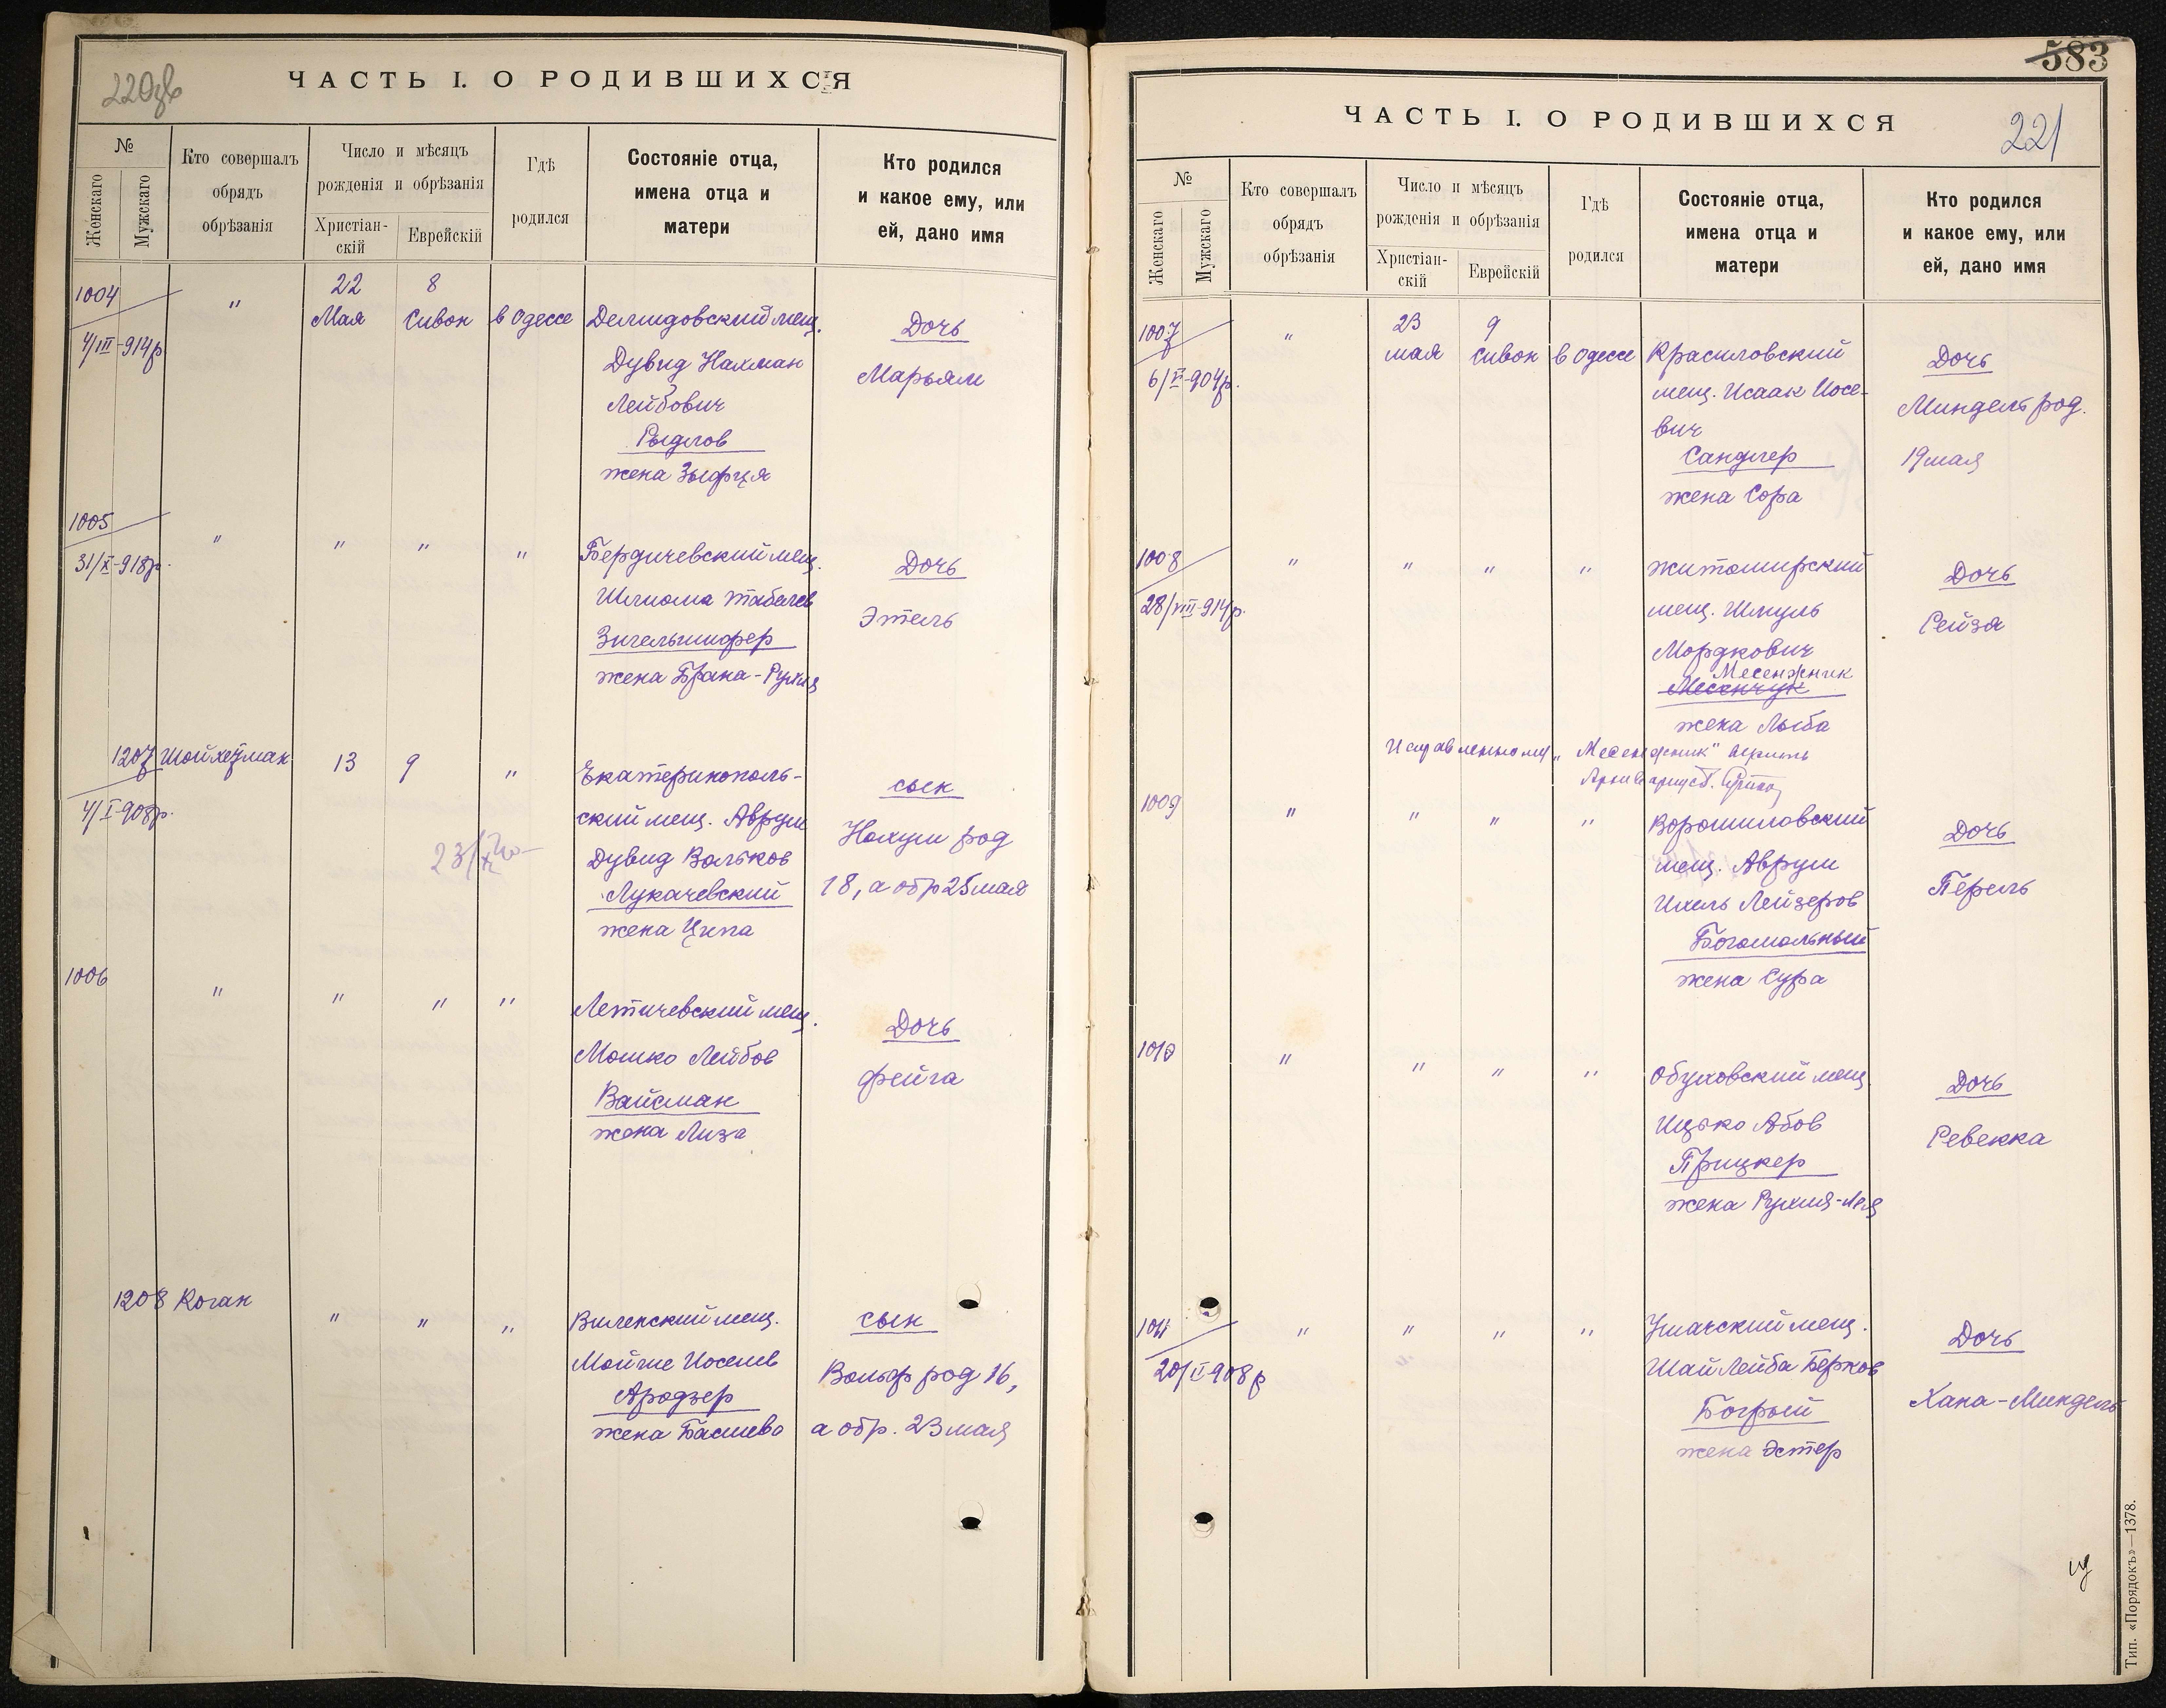 ЧАСТЬ I. О РОДИВШИХСЯ
№
Женскаго
Мужскаго
Кто совершалъ
обрядъ
обрѣзанія
Число и мѣсяцъ
рожденія и обрѣзанія
Христіан-
скій
Еврейскій
Гдѣ
родился
Состояніе отца,
имена отца и
матери
Кто родился
и какое ему, или
ей, дано имя
1004
4/III-914р.
"
22
Мая
8
Сивон
в Одессе
мещ.
Дувид Нахман
Лейбович
Рыдлов
жена Зыфря
Дочь
Марьям
1005
31/X-918р.
" " " "
Бердичевский мещ.
Шлиома
жена Брана-Рухля
Дочь
Этель
1207
4/I-908р.
13
9
"
Екатеринополь-
ский мещ. Аврум
Дувид Вольков
Лукачевский
жена Ципа
сын
Нахум род
18, а обр 25 мая
1006
" " " "
Летичевский мещ.
Мошко Лейбов
Вайсман
жена Лиза
Дочь
Фейга
1208
Коган
" " "
Виленский мещ.
Мойше Иоселев
Ародзер
жена Басшева
сын
Вольф род 16,
а обр. 23 мая
583
ЧАСТЬ I. О РОДИВШИХСЯ
221
№
Женскаго
Мужскаго
Кто совершалъ
обрядъ
обрѣзанія
Число и мѣсяцъ
рожденія и обрѣзанія
Христіан-
скій
Еврейскій
Гдѣ
родился
Состояніе отца,
имена отца и
матери
Кто родился
и какое ему, или
ей, дано имя
1007
"
23
мая
9
Сивон
в Одессе
Красиловский
мещ. Исаак Иосе-
вич
Сандлер
жена Сора
Дочь
Миндель род.
19 мая
1008
28/VIII-914р.
" " " "
житомирский
мещ. Шмуль
Мордкович
Месенжник
Месенчук
жена Лыба
Дочь
Рейза
Исправленному „Месенжник" верить
1009
" " " "
Ворошиловский
мещ. Аврум
Ихель Лейзеров
Богомольный
жена Сура
Дочь
Перель
1010
" " " "
Обуховский мещ.
Ицько Абов
Прицкер
жена Рухля-Лея
Дочь
Ревекка
1011
" " " "
Ушачский мещ.
Шай Лейба Берков
Богрый
жена Эстер
Дочь
Хана-Миндель
Тип. «Порядокъ»—1378.